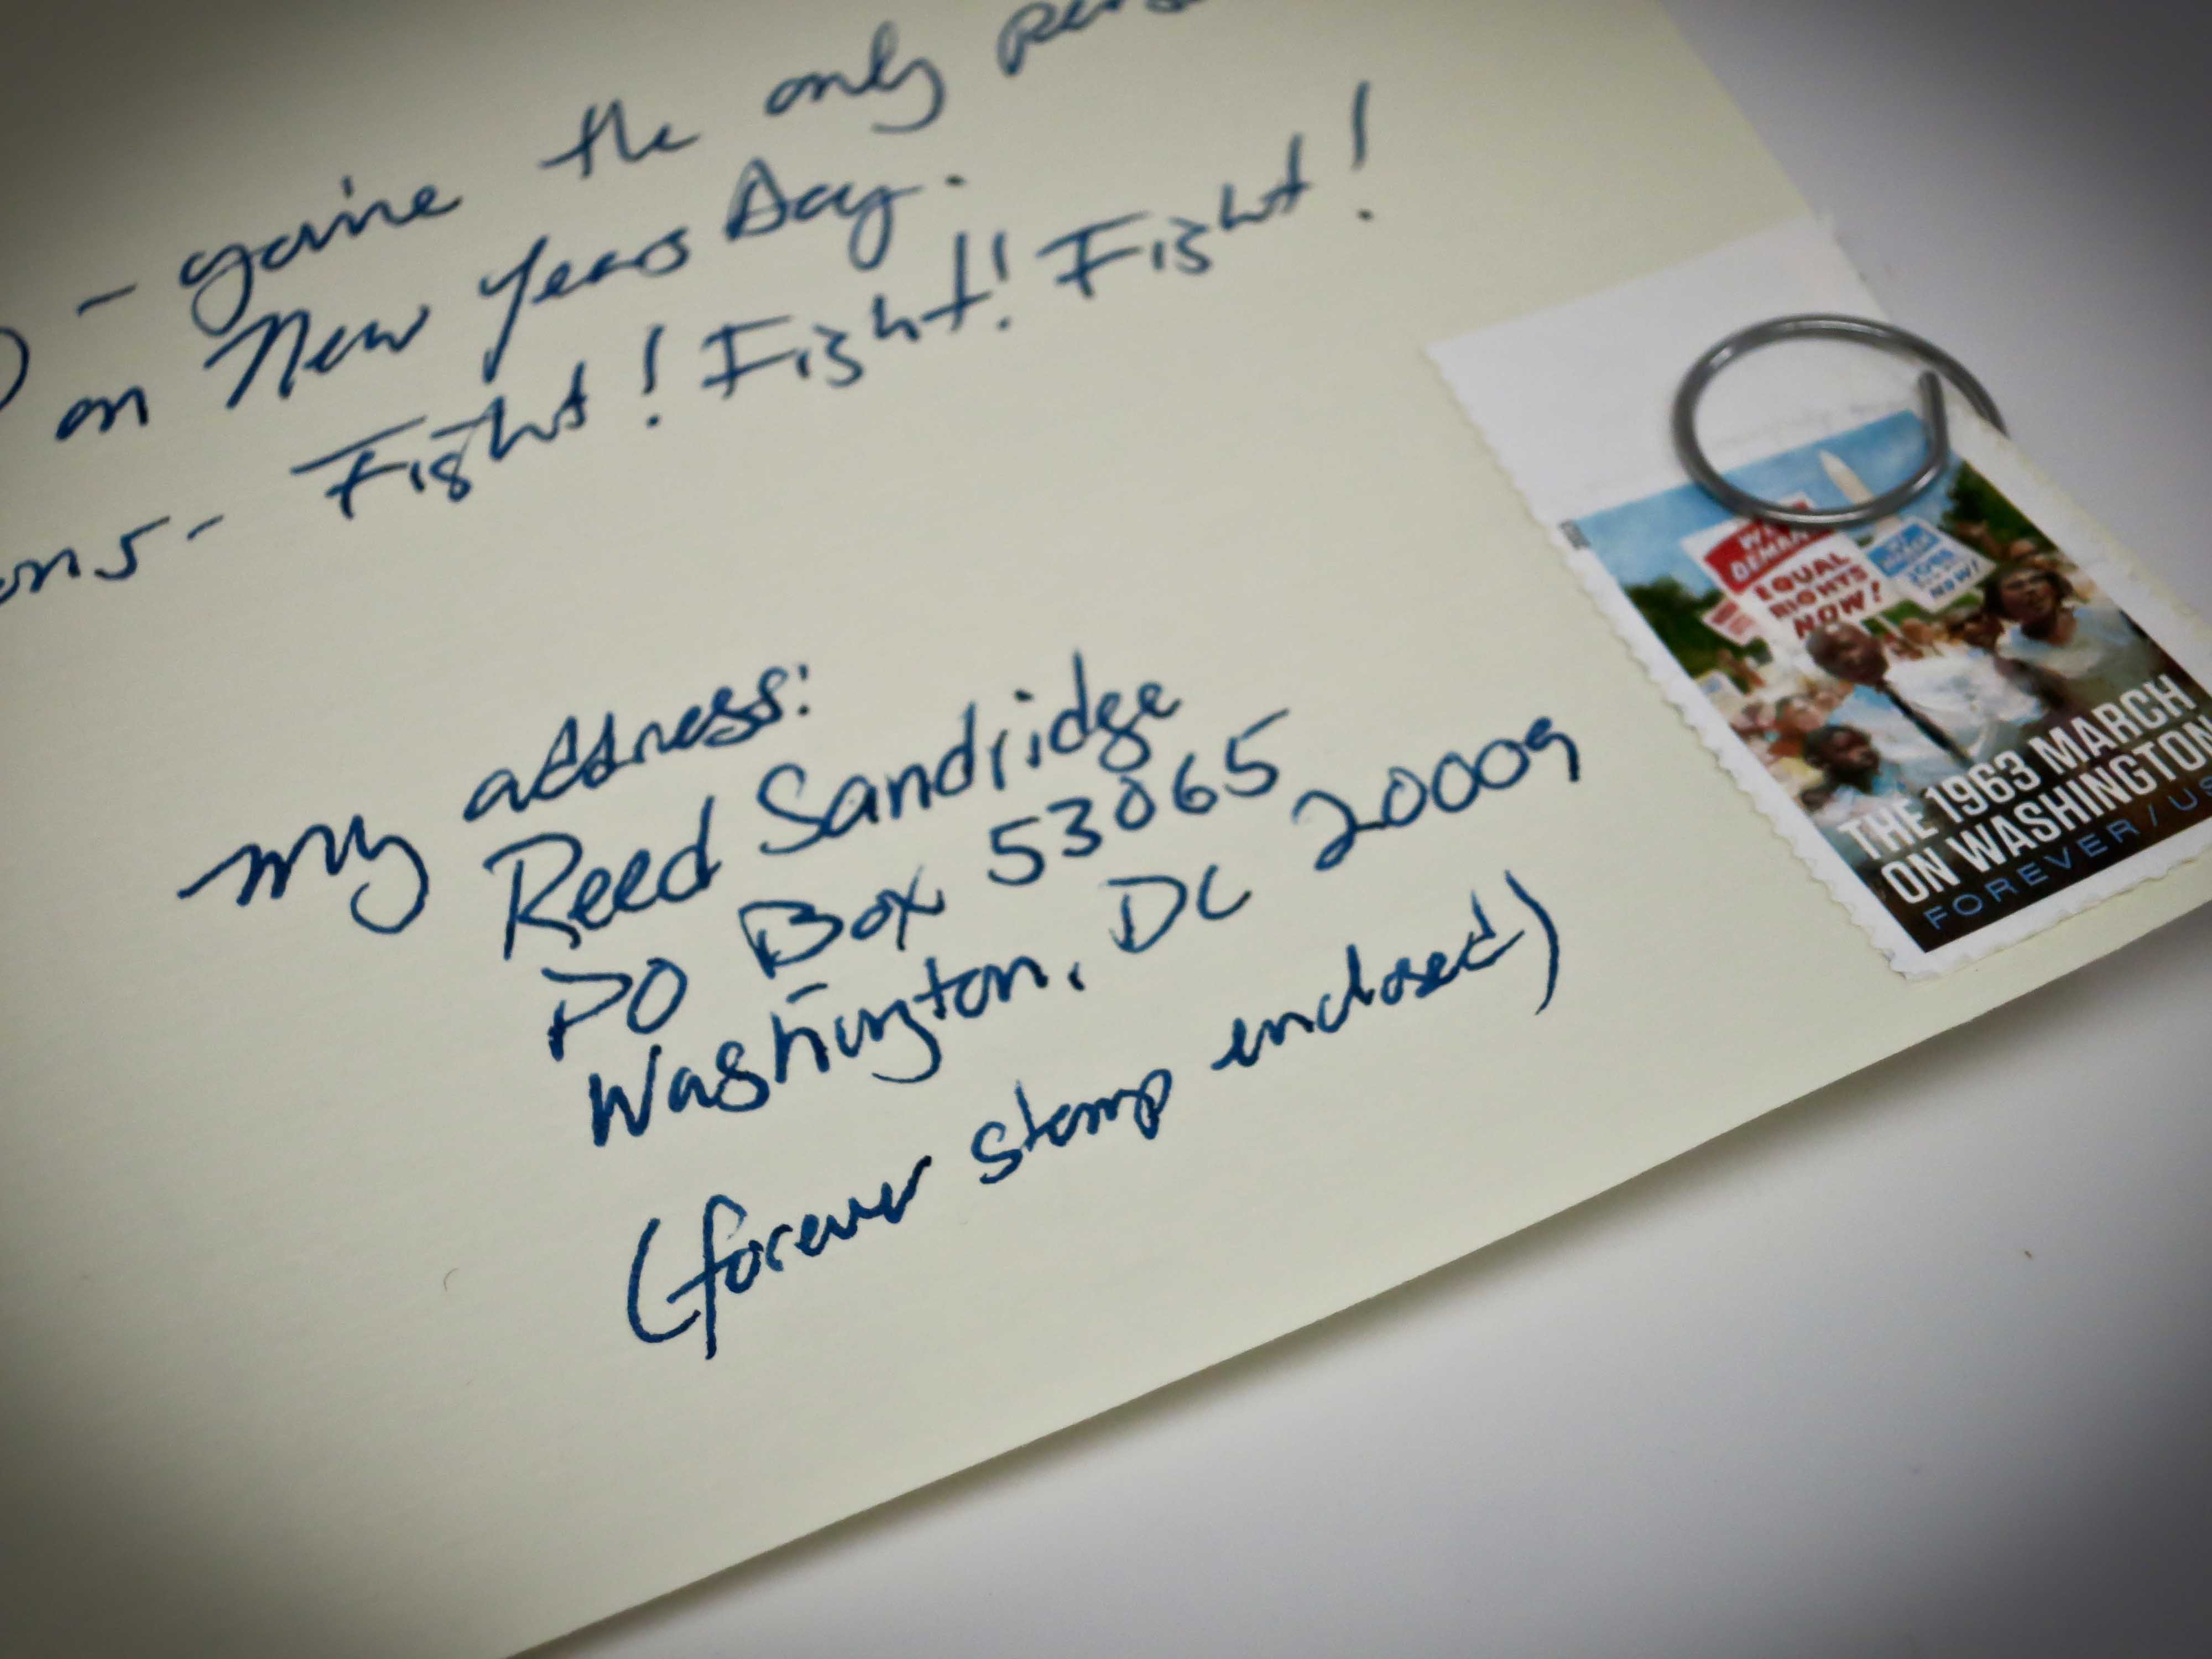 - you're the only
on New Years Day.
Fight! Fight! Fight!
my address:
Reed Sandridge
PO Box 53065
Washington, DC 20009
(forever stamp enclosed)
WE
DEMAND
EQUAL
RIGHTS
NOW!
JOBS
NOW!
THE 1963 MARCH
ON WASHINGTON
FOREVER / US